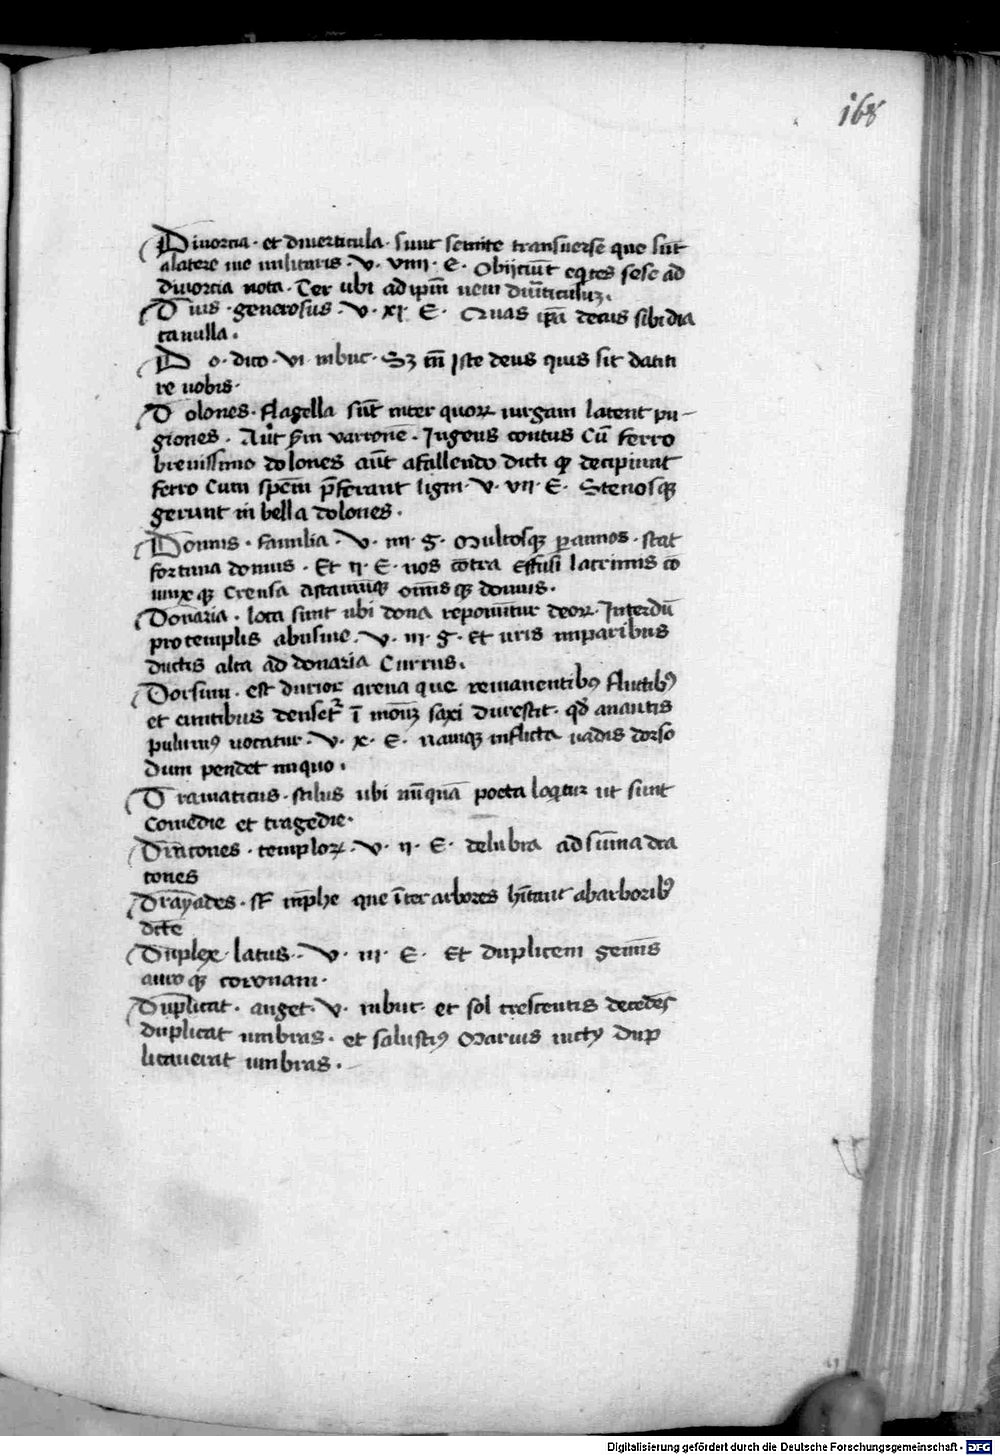 168
Diuorcia · et diuerticula · sunt semite transuerse que sūt
alatere uie militaris · V · VIIII · E · Obijciūt eqtes sese ad
diuorcia nota · Ter ubi ad ipm̄ uem diūticuluz.
D iuis · generosus · V · XI E · Quas ip̄a decus sibi dia
camilla ·
D o · dico · VI · inbuc · Sz tn̄ Iste deus quis sit da titi
re nobis ·
D olones · flagella sūt inter quorꝝ uirgam latent pu-
giones · Aūt scdm varrone · Ingens contus Cū ferro
breuissimo dolones aūt afallendo dicti qꝫ decipiunt
ferro Cum speciem p̄ferant ligni · V · VII · E · Sceuosqꝫ
gerunt in bella dolones ·
Domus · familia · V · IIII · G · Multosqꝫ per annos · stat
fortuna domus · Et II · E · nos cōtra effusi lacrimis cō
iunx qꝫ Creusa Astaniusqꝫ omis qꝫ domus ·
Donaria · loca sunt ubi dona reponūtur deorꝝ · Interdū
pro templis abusiue · V · III · G · Et uris imparibus
ductis alta ad donaria Currus ·
Dorsum · est durior arena que remanentibꝰ fluctibꝰ
et euntibus densetʳ ī modū saxi durescit · qđ anautis
puluinꝰ uocatur · V · X · E · namqꝫ inflicta uadis dorso
dum pendet iniquo ·
D ramaticus · stilus ubi nūquā poeta loqtur ut sunt
comedie et tragedie ·
Dracones · templorꝝ · V · II · E · delubra ad sūma dra
cones
Drayades · sꝭ nīphe que īter arbores hītant abarboribꝰ
dicte
Duplex · latus · V · III · E · Et duplicem gemis
auro qꝫ coronam ·
Duplicat · auget · V · inbuc · et sol crescentis decedēs
duplicat umbras · et salustiꝰ Marius uictꝰ dup
licauerat umbras ·
Digitalisierung gefördert durch die Deutsche Forschungsgemeinschaft · DFG